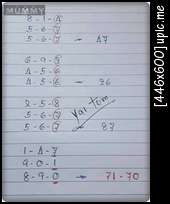 MUMMY
8-1-4
5-6-7
5-6-7 → 47
6-9-8
4-5-6
4-5-6 → 36
2-5-8
5-6-7
5-6-7 → 87
Yai Tom
1-4-7
9-0-1
8-9-0 → 71-70
[446x600] upic.me